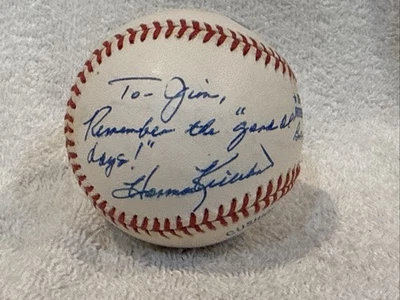 To - Jim,
Remember the "good ol
days!"
Harmon Killebrew
CUSHI